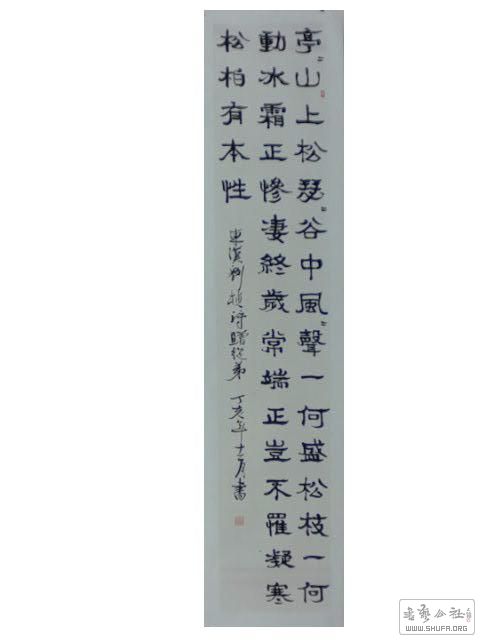 亭〻山上松瑟〻谷中風〻聲一何盛松枝一何
動冰霜正慘凄終歲常端正豈不罹凝寒
松柏有本性
東漢劉楨詩贈從弟 丁亥年十二月書
书艺公社
WWW.SHUFA.ORG